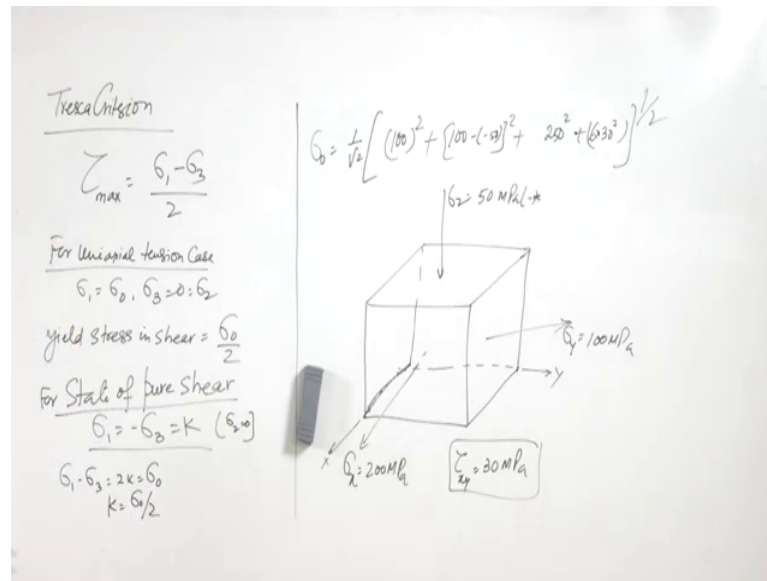 Tresca Critsion
τmax = (σ1-σ3)/2
For Uniaxial tension Case
σ1 = σ0, σ3=0=σ2
yield Stress in shear = σ0/2
For State of pure Shear
σ1 = -σ3 = K (σ2=0)
σ1-σ3 = 2K = σ0
K = σ0/2
σ0 = 1/√2 [(100)² + [100-(-50)]² + 250² + (6×30²)]^1/2
σz = 50 MPa(-
σy = 100MPa
Y
X
σx = 200MPa
τxy = 30 MPa